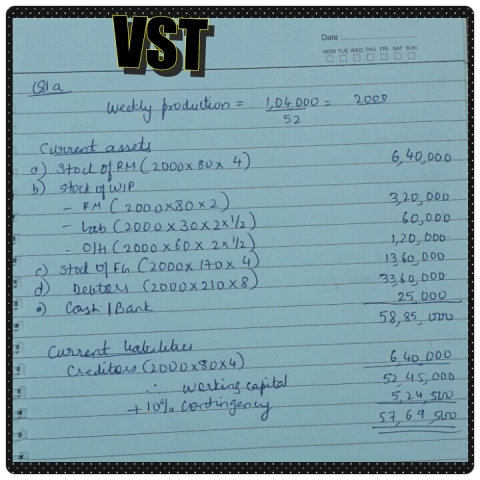 VST
Date :
MON TUE WED THU FRI SAT SUN
Q1a
Weekly production = 1,04,000 / 52 = 2000
Current assets
a) Stock of RM (2000x80x4) 6,40,000
b) Stock of WIP
- RM (2000x80x2) 3,20,000
- Lab (2000x30x2x1/2) 60,000
- O/H (2000x60x2x1/2) 1,20,000
c) Stock of FG (2000x170x4) 13,60,000
d) Debtors (2000x210x8) 33,60,000
e) Cash / Bank 25,000
58,85,000
Current liabilities
Creditors (2000x80x4) 6,40,000
∴ Working capital 52,45,000
+ 10% Contingency 5,24,500
57,69,500